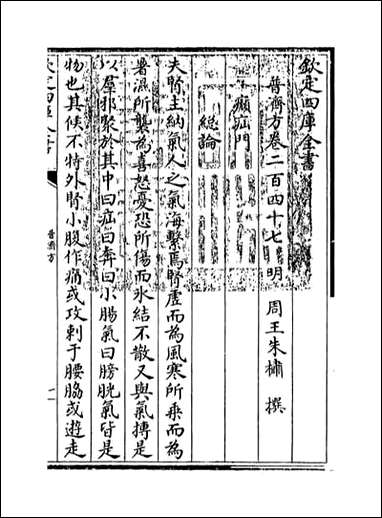 欽定四庫全書
普濟方卷二百四十七　明　周王朱橚　撰
癲疝門
總論
夫腎主納氣人之氣海繫焉腎虛而為風寒所乗而為
暑濕所襲為喜怒憂恐所傷而氷結不散又與氣搏是
以羣邪聚於其中曰疝曰奔曰小腸氣曰膀胱氣皆是
物也其候不特外腎小腹作痛或攻刺于腰脇或遊走
普濟方
一